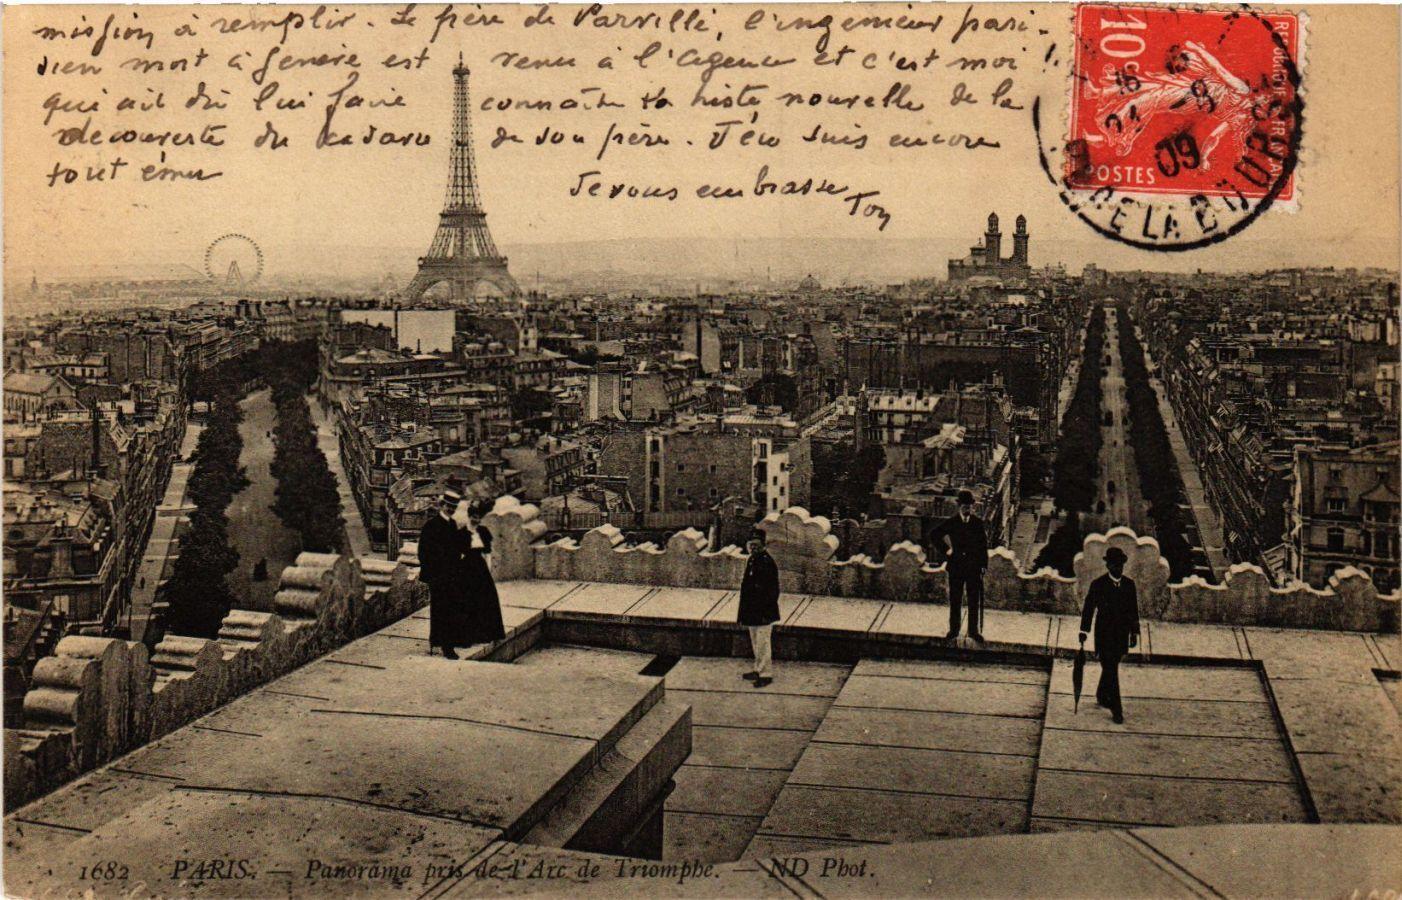 mission à remplir. Le père de Parville, l'ingénieur pari-
sien mort à Genève est revenu à l'Agence et c'est moi
qui ait dû lui faire connaître la triste nouvelle de la
découverte du cadavre de son père. J'en suis encore
tout ému
Je vous embrasse
10c.
REPUBLIQUE FRANÇAISE
POSTES
09
DE LA BOURSE
1682 PARIS. — Panorama pris de l'Arc de Triomphe. — ND Phot.